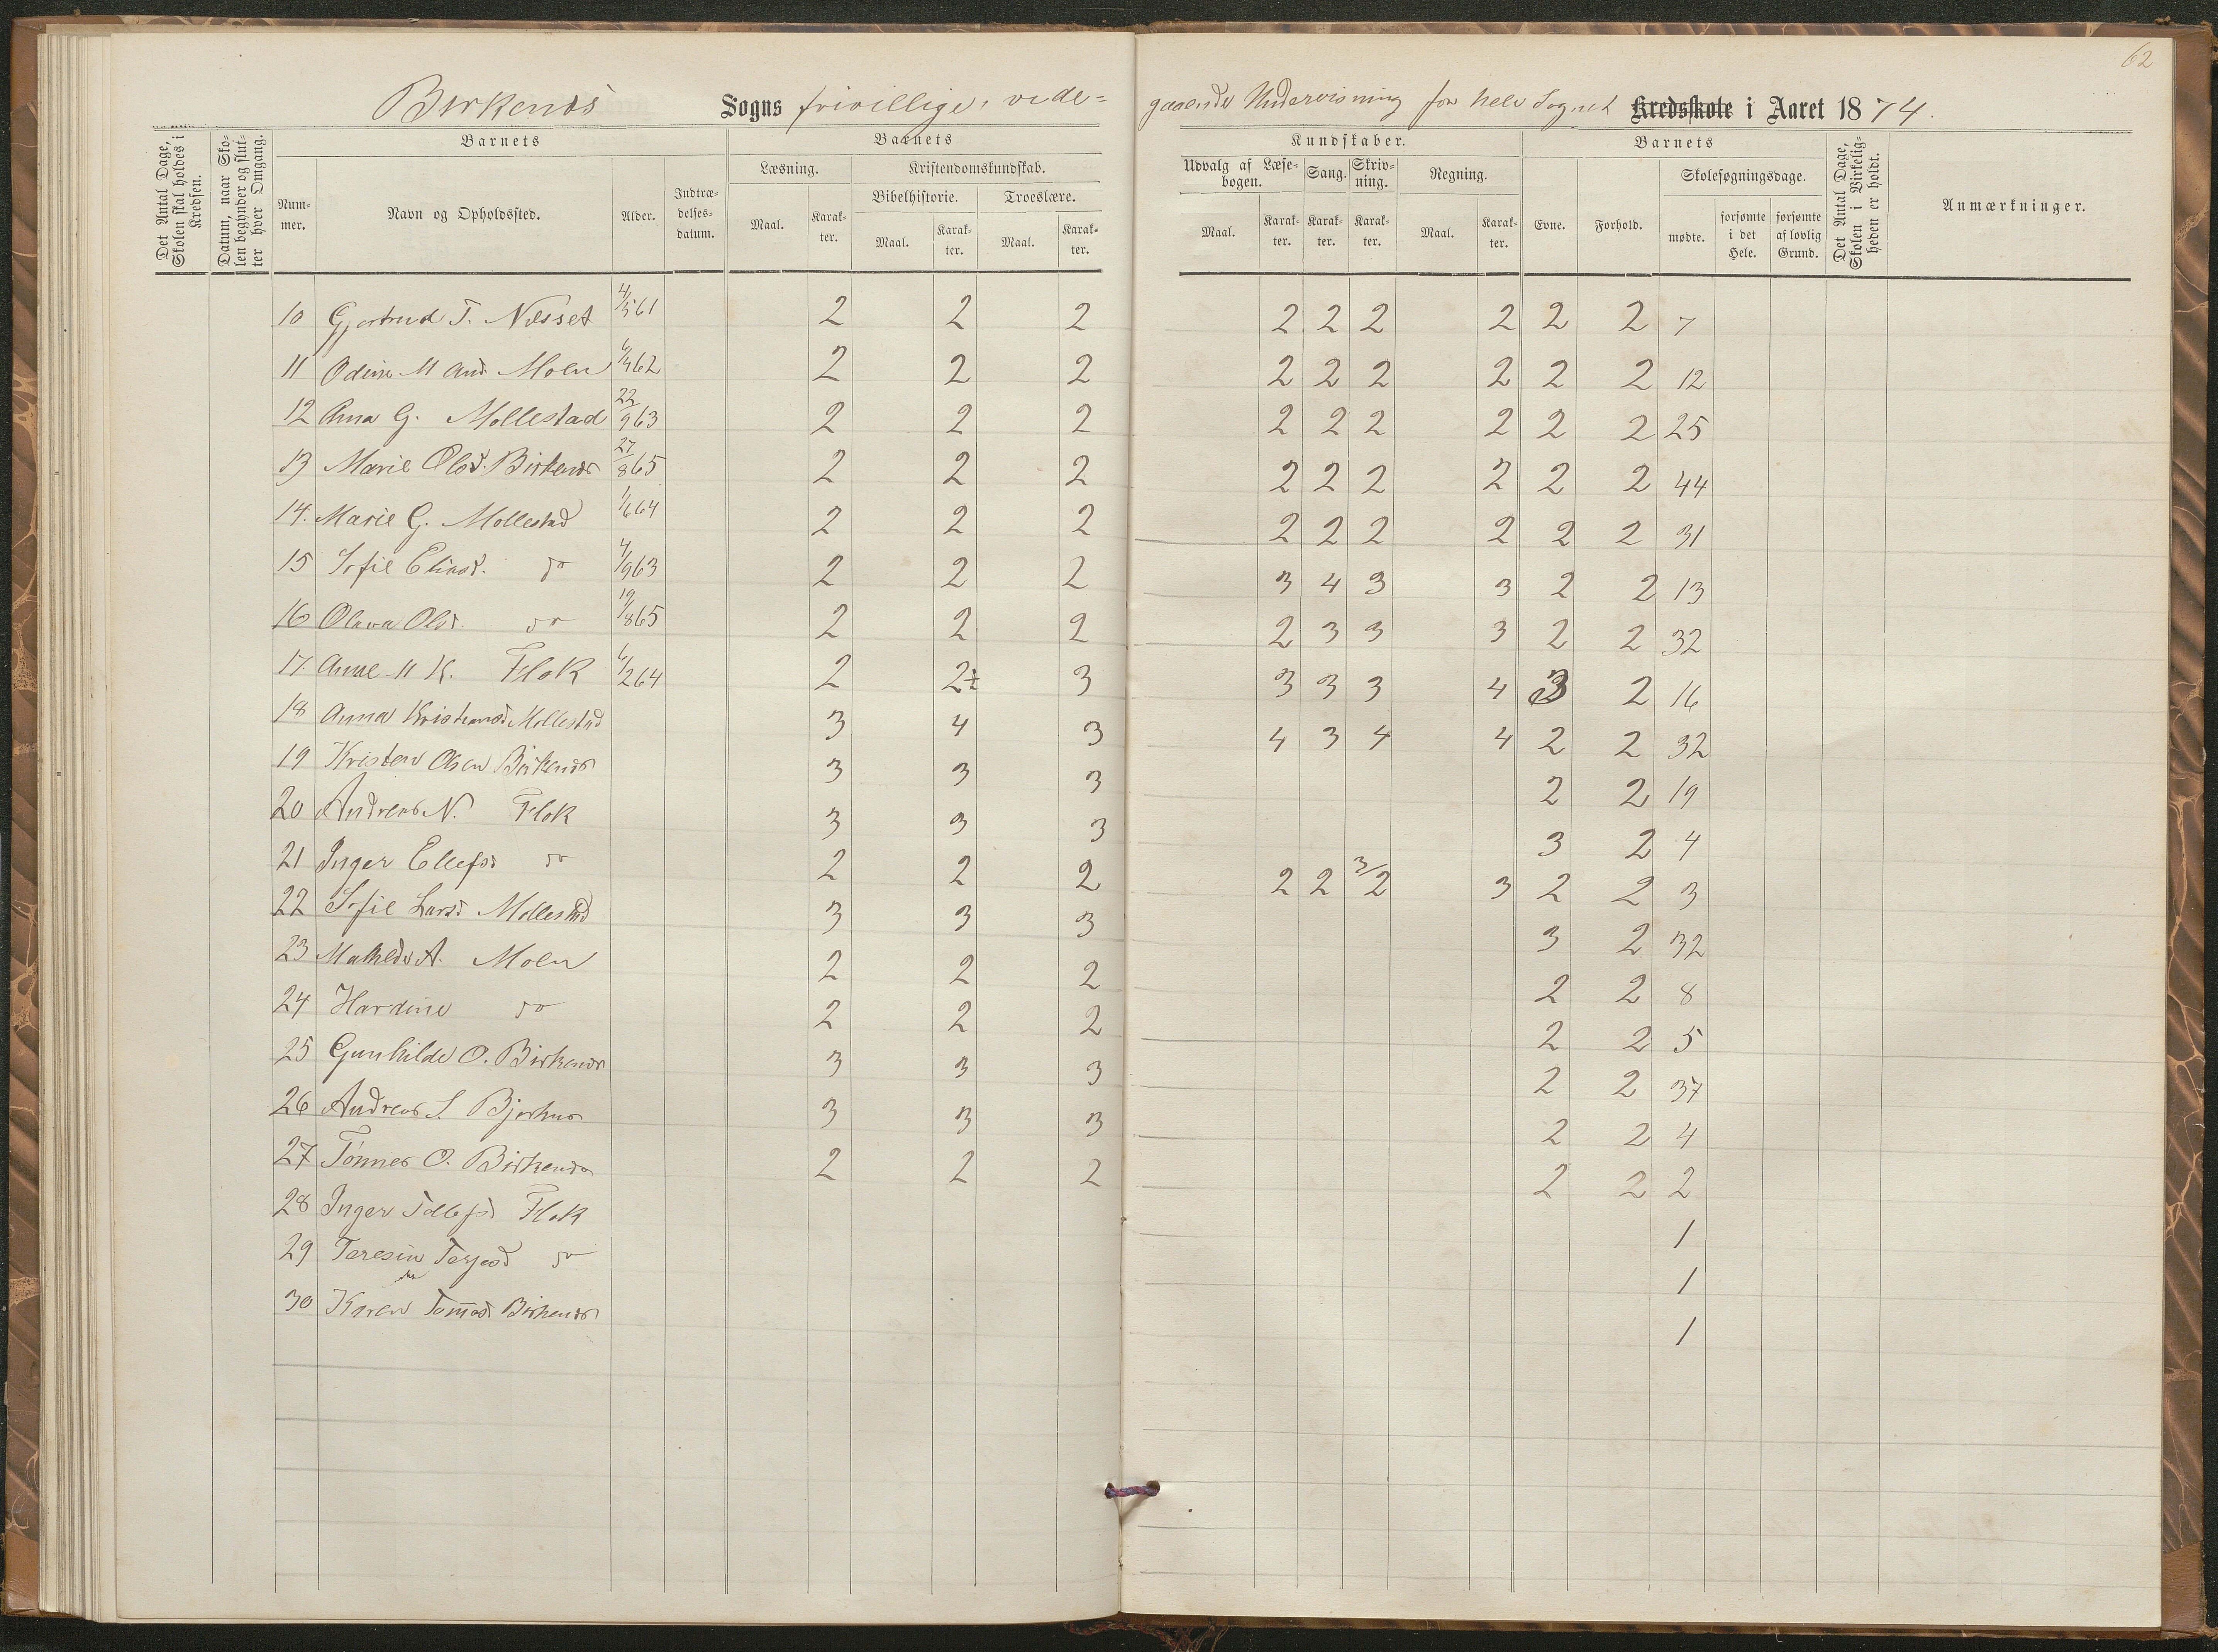 62
Birkenæs Sogns frivillige, vide= gaaende Undervisning for hele Sognet Kredsskole i Aaret 1874.
Det Antal Dage, Skolen skal holdes i Kredsen.
Datum, naar Skolen begynder og slutter hver Omgang.
Barnets
Nummer.
Navn og Opholdssted.
Alder.
Indtrædelsesdatum.
Barnets
Læsning.
Maal.
Karakter.
Kristendomskundskab.
Bibelhistorie.
Maal.
Karakter.
Troeslære.
Maal.
Karakter.
Kundskaber.
Udvalg af Læsebogen.
Maal.
Karakter.
Sang.
Karakter.
Skrivning.
Karakter.
Regning.
Maal.
Karakter.
Barnets
Evne.
Forhold.
Skolesøgningsdage.
mødte.
forsømte i det Hele.
forsømte af lovlig Grund.
Det Antal Dage, Skolen i Virkeligheden er holdt.
Anmærkninger.
10 Gjertrud T. Næsset 4/5 61 2 2 2 2 2 2 2 2 2 7
11 Odine M And. Moen 6/4 62 2 2 2 2 2 2 2 2 2 12
12 Anna G. Mollestad 22/9 63 2 2 2 2 2 2 2 2 2 25
13 Marie Olsd. Birkenæs 27/8 65 2 2 2 2 2 2 2 2 2 44
14. Marie G. Mollestad 1/6 64 2 2 2 2 2 2 2 2 2 31
15 Sofie Eliasd. do 4/9 63 2 2 2 3 4 3 3 2 2 13
16 Olava Olsd. do 19/8 65 2 2 2 2 3 3 3 2 2 32
17. Anne M K. Flak 6/2 64 2 2½ 3 3 3 3 4 3 2 16
18 Anna Kristiansd Mollestad 3 4 3 4 3 4 4 2 2 32
19 Kristen Olsen Birkenæs 3 3 3 2 2 19
20 Andreas N. Flak 3 3 3 3 2 4
21 Inger Ellefsd do 2 2 2 2 2 3/2 3 2 2 3
22 Sofie Larsd Mollestad 3 3 3 3 2 32
23 Mathilde A. Moen 2 2 2 2 2 8
24 Hardine do 2 2 2 2 2 5
25 Gunhilde O. Birkenæs 3 3 3 2 2 37
26 Andreas S. Bjorhus 3 3 3 2 2 4
27 Tønnes O. Birkenæs 2 2 2 2 2 2
28 Inger Tellefsd Flak 1
29 Teresin Terjesd do 1
30 Karen Tomasd Birkenæs 1